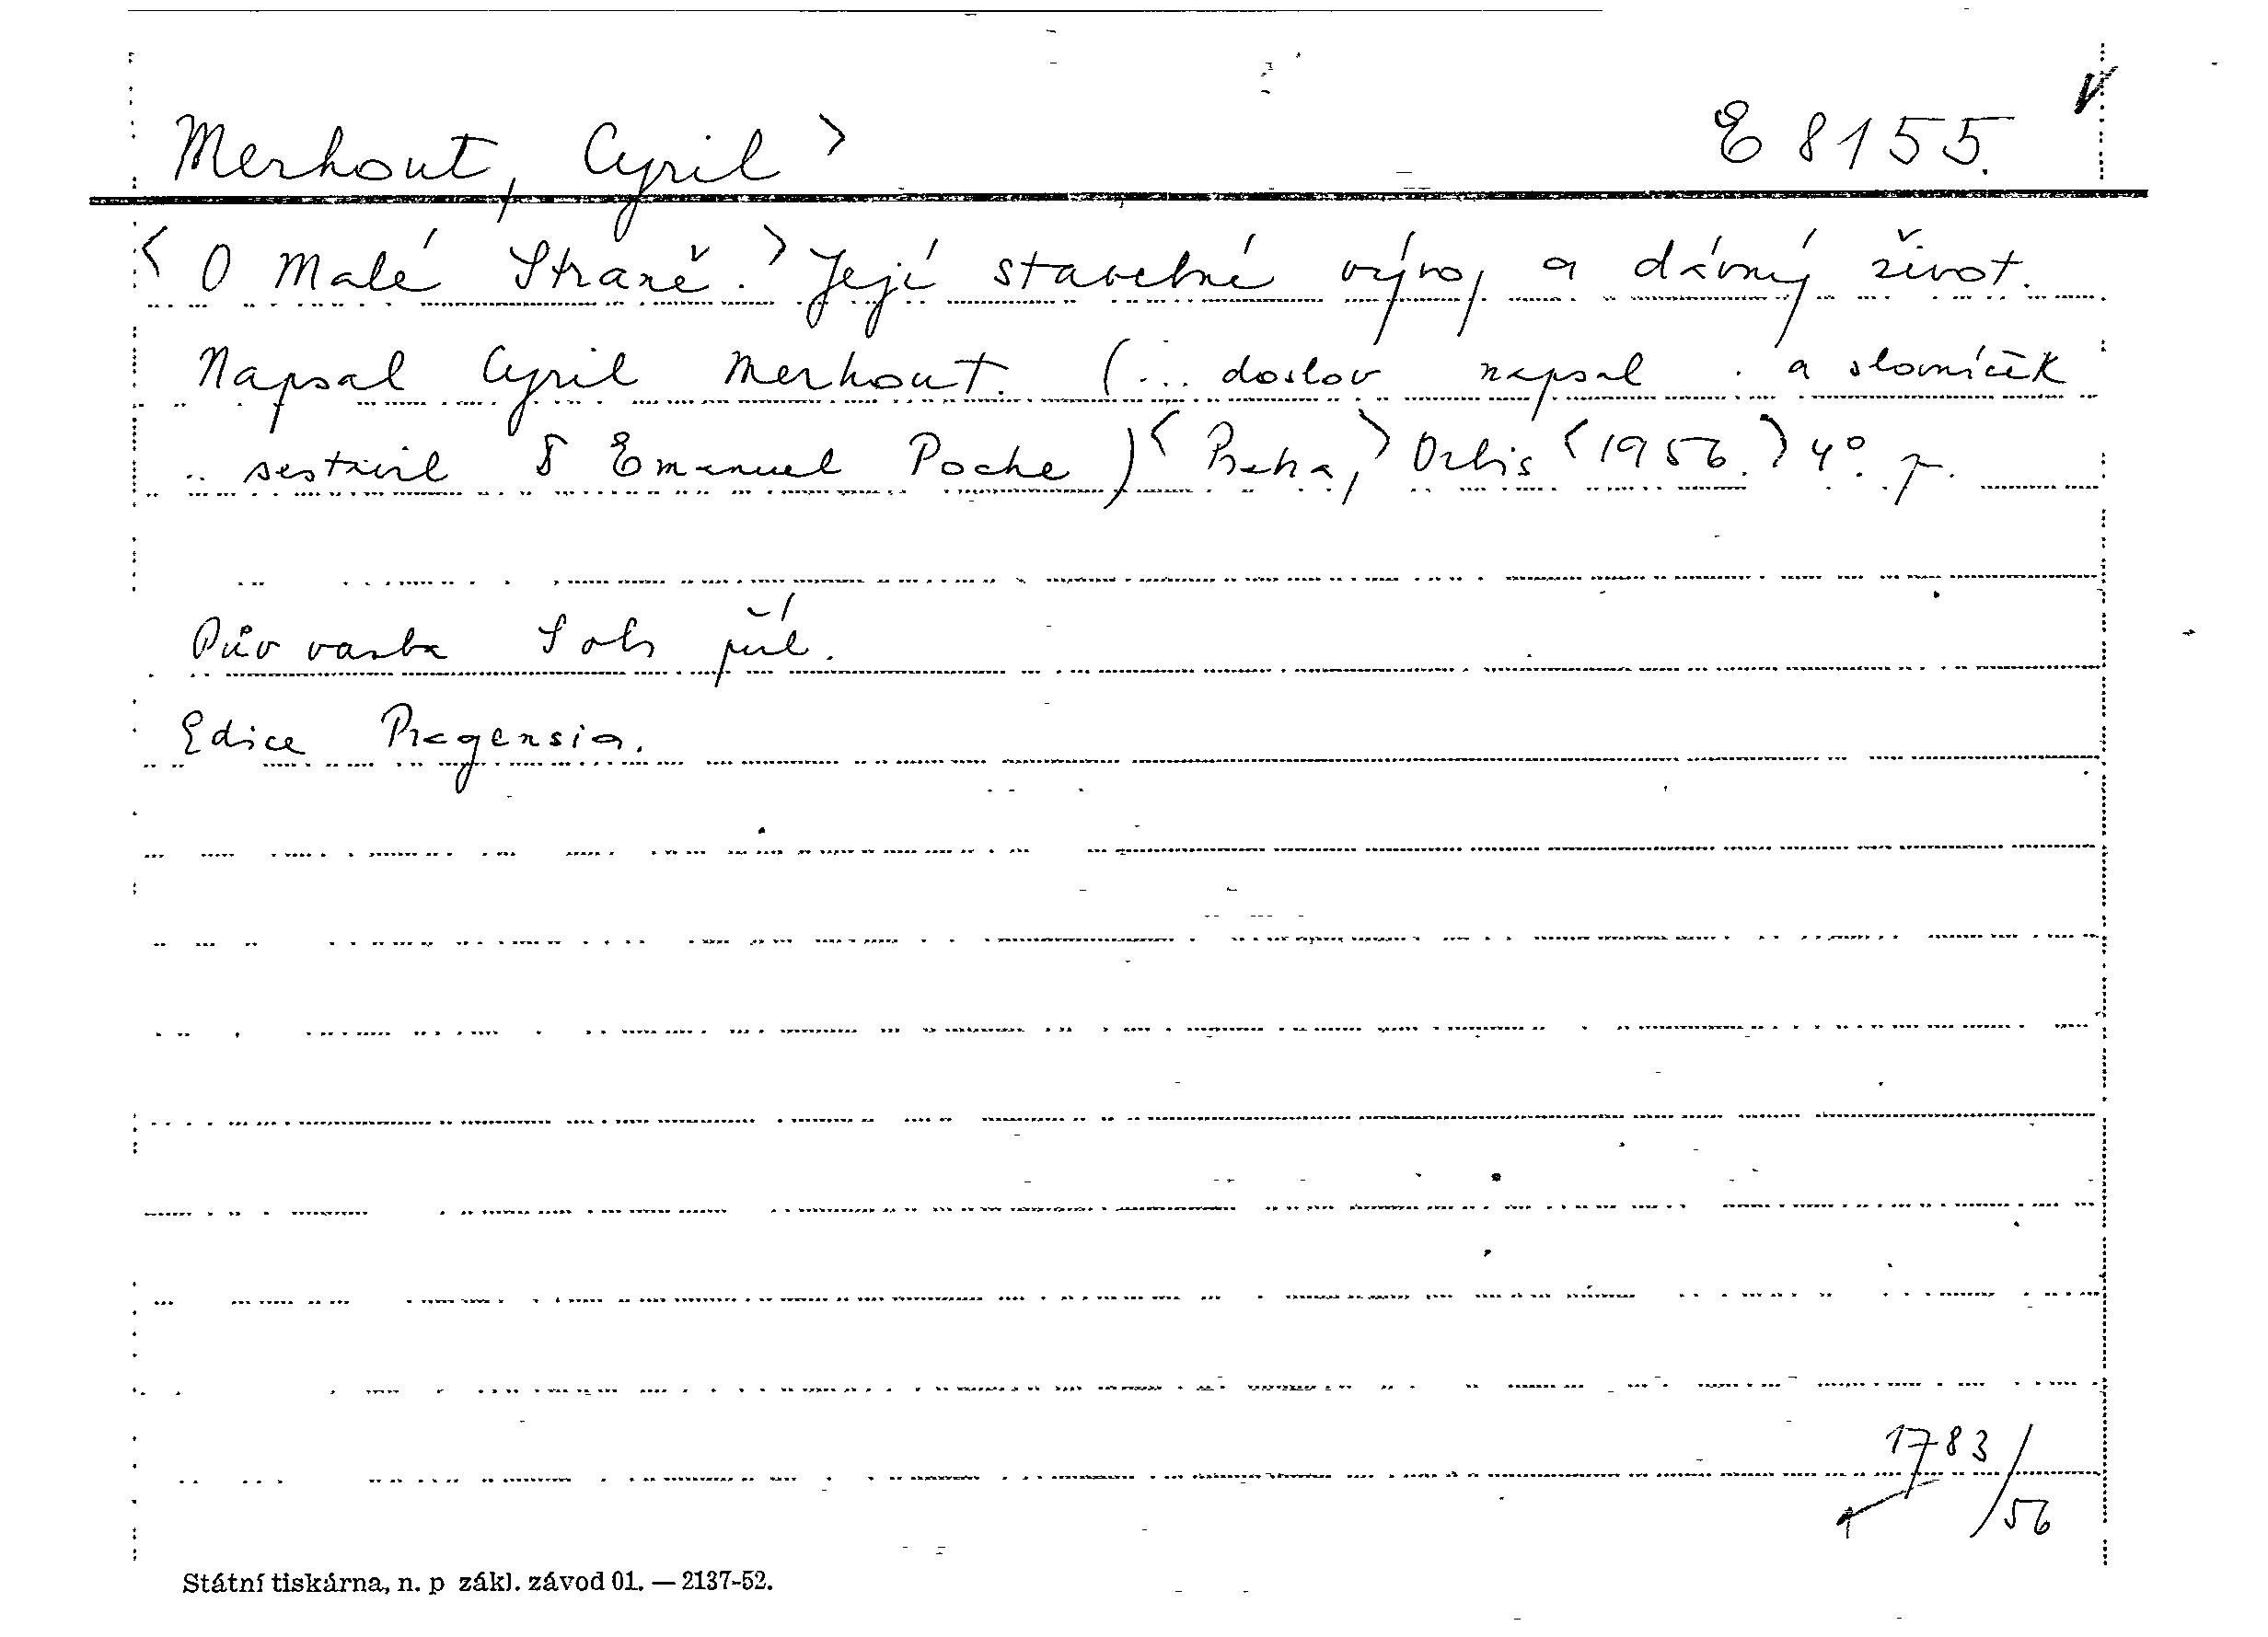 Merhout, Cyril > E 8155.
< O Malé Straně. > Její stavební vývoj a dávný život.
Napsal Cyril Merhout. (... doslov napsal . a slovníček
.. sestavil Emanuel Poche) < Praha, > Orbis < 1956. > 4°. p.
Pův vazba S obr příl.
Edice Pragensia.
1783/56
Státní tiskárna, n. p zákl. závod 01. — 2137-52.